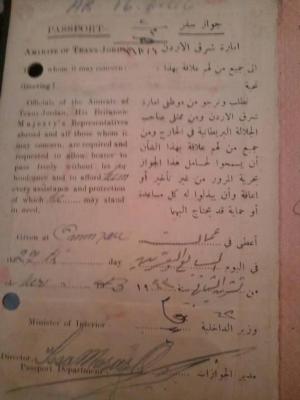 PASSPORT
جواز سفر
AMIRATE OF TRANS-JORDAN
امارة شرق الاردن
whom it may concern:
الى جميع من لهم علاقة بهذا:
Greeting!
تحية
Officials of the Amirate of
Trans-Jordan, His Britannic
Majesty's Representatives
abroad and all those whom it
may concern, are required and
requested to allow bearer to
pass freely without let or
hindrance and to afford him
every assistance and protection
of which he may stand
in need.
نطلب ونرجو من موظفي امارة
شرق الاردن ومن ممثلي صاحب
الجلالة البريطانية في الخارج ومن
جميع من لهم علاقة بهذا الشأن
أن يسمحوا لحامل هذا الجواز
بحرية المرور من غير تأخير أو
اعاقة وأن يبذلوا له كل مساعدة
أو حماية قد يحتاج اليها
Given at Amman
أعطي في عمان
the 27th day
في اليوم السابع والعشرين
of Nov.
من تشرين الثاني سنة
Minister of Interior
وزير الداخلية
Director
Passport Department
مدير الجوازات